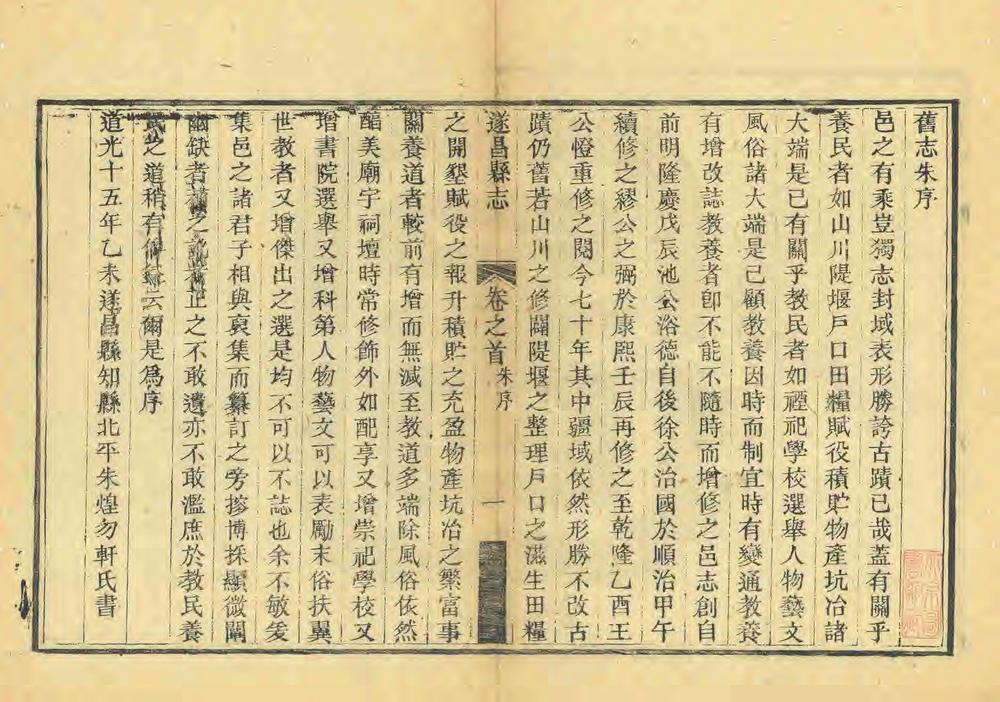 舊志朱序
邑之有乘豈獨志封域表形勝誇古蹟已哉蓋有關乎
養民者如山川隄堰戶口田糧賦役積貯物產坑冶諸
大端是已有關乎教民者如禋祀學校選舉人物藝文
風俗諸大端是已顧教養因時而制宜時有變通教養
有增改誌教養者卽不能不隨時而增修之邑志創自
前明隆慶戊辰池公浴德自後徐公治國於順治甲午
續修之繆公之弼於康熙壬辰再修之至乾隆乙酉王
公憕重修之閱今七十年其中疆域依然形勝不改古
蹟仍舊若山川之修闢隄堰之整理戶口之滋生田糧
遂昌縣志 卷之首 朱序 一
之開墾賦役之報升積貯之充盈物產坑冶之繁富事
關養道者較前有增而無減至教道多端除風俗依然
醕美廟宇祠壇時常修飾外如配享又增崇祀學校又
增書院選舉又增科第人物藝文可以表勵末俗扶翼
世教者又增傑出之選是均不可以不誌也余不敏爰
集邑之諸君子相與裒集而纂訂之旁摉博採顯微闡
幽缺者補之訛者正之不敢遺亦不敢濫庶於教民養
民之道稍有備云爾是爲序
道光十五年乙未遂昌縣知縣北平朱煌勿軒氏書